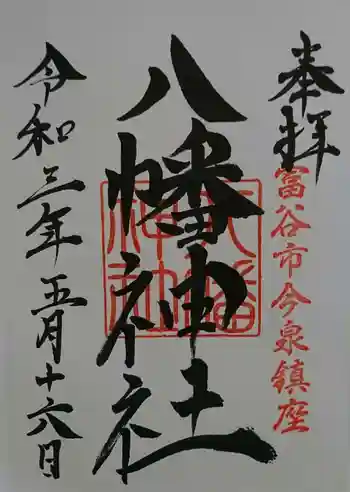 奉拝
富谷市今泉鎮座
八幡神社
八幡神社
令和三年五月十六日